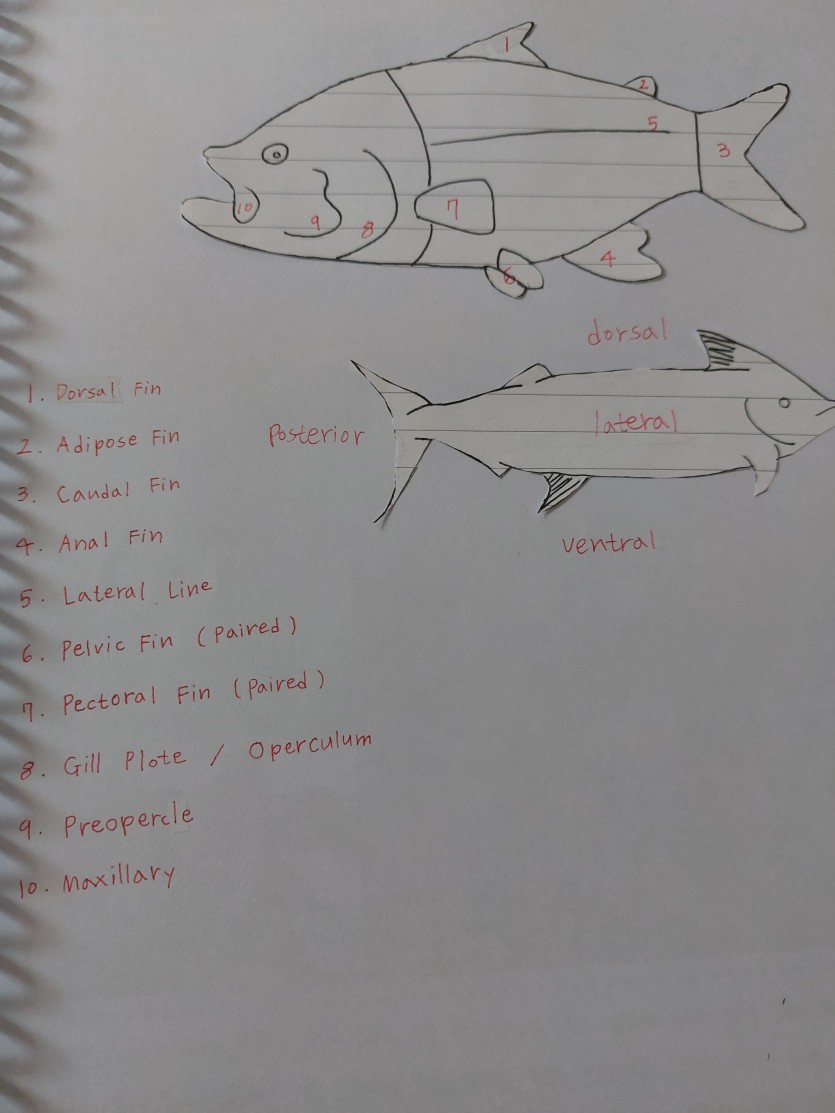 1
2
5
3
10
9
8
7
4
6
dorsal
Posterior
lateral
ventral
1. Dorsal Fin
2. Adipose Fin
3. Caudal Fin
4. Anal Fin
5. Lateral Line
6. Pelvic Fin (Paired)
7. Pectoral Fin (Paired)
8. Gill Plote / Operculum
9. Preopercle
10. Moxillary